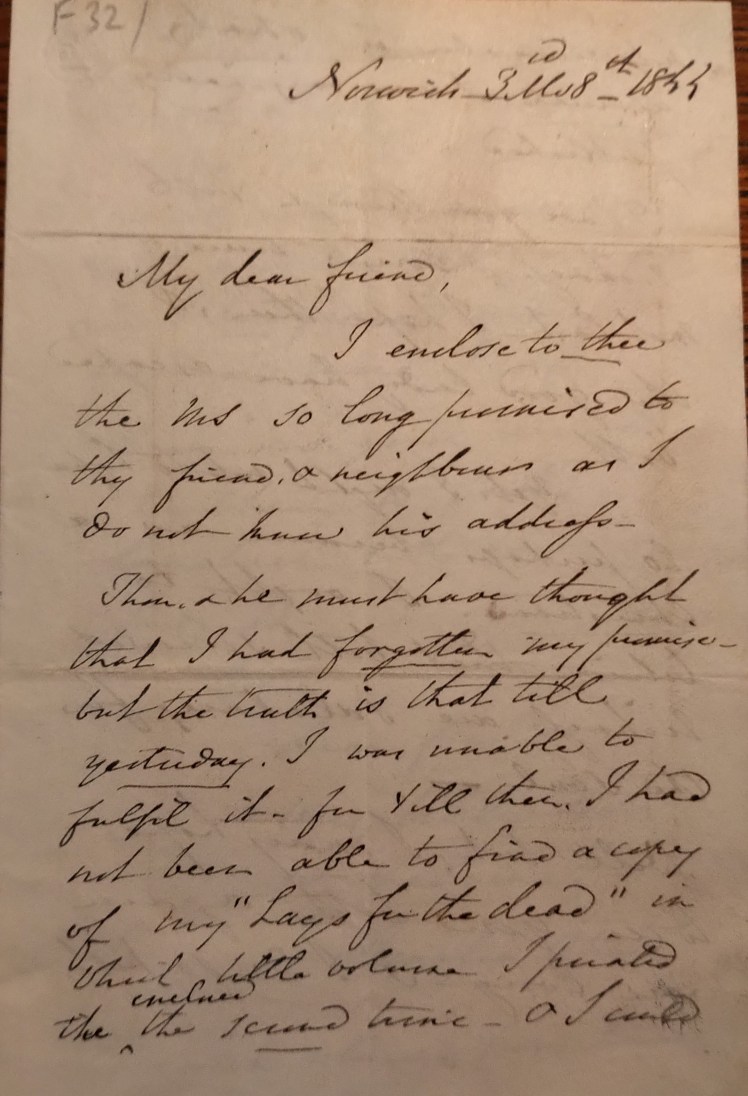 F 32/
Norwich 3rd Mo 8th 1844
My dear friend,
I enclose to thee
the MS so long promised to
thy friend, & neighbour as I
do not know his address -
Thou, & he must have thought
that I had forgotten my promise -
but the truth is that till
yesterday. I was unable to
fulfil it - for till then, I had
not been able to find a copy
of my "Lays for the dead" in
which little volume I printed
the enclosed
the second time - & I could